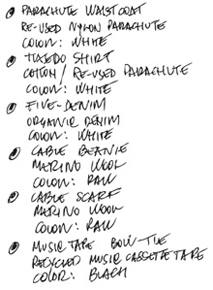 PARACHUTE WAISTCOAT
RE-USED NYLON PARACHUTE
COLOR: WHITE
TUXEDO SHIRT
COTTON / RE-USED PARACHUTE
COLOR: WHITE
FIVE-DENIM
ORGANIC DENIM
COLOR: WHITE
CABLE BEANIE
MERINO WOOL
COLOR: RAW
CABLE SCARF
MERINO WOOL
COLOR: RAW
MUSIC TAPE BOW-TIE
RECYCLED MUSIC CASSETTE TAPE
COLOR: BLACK